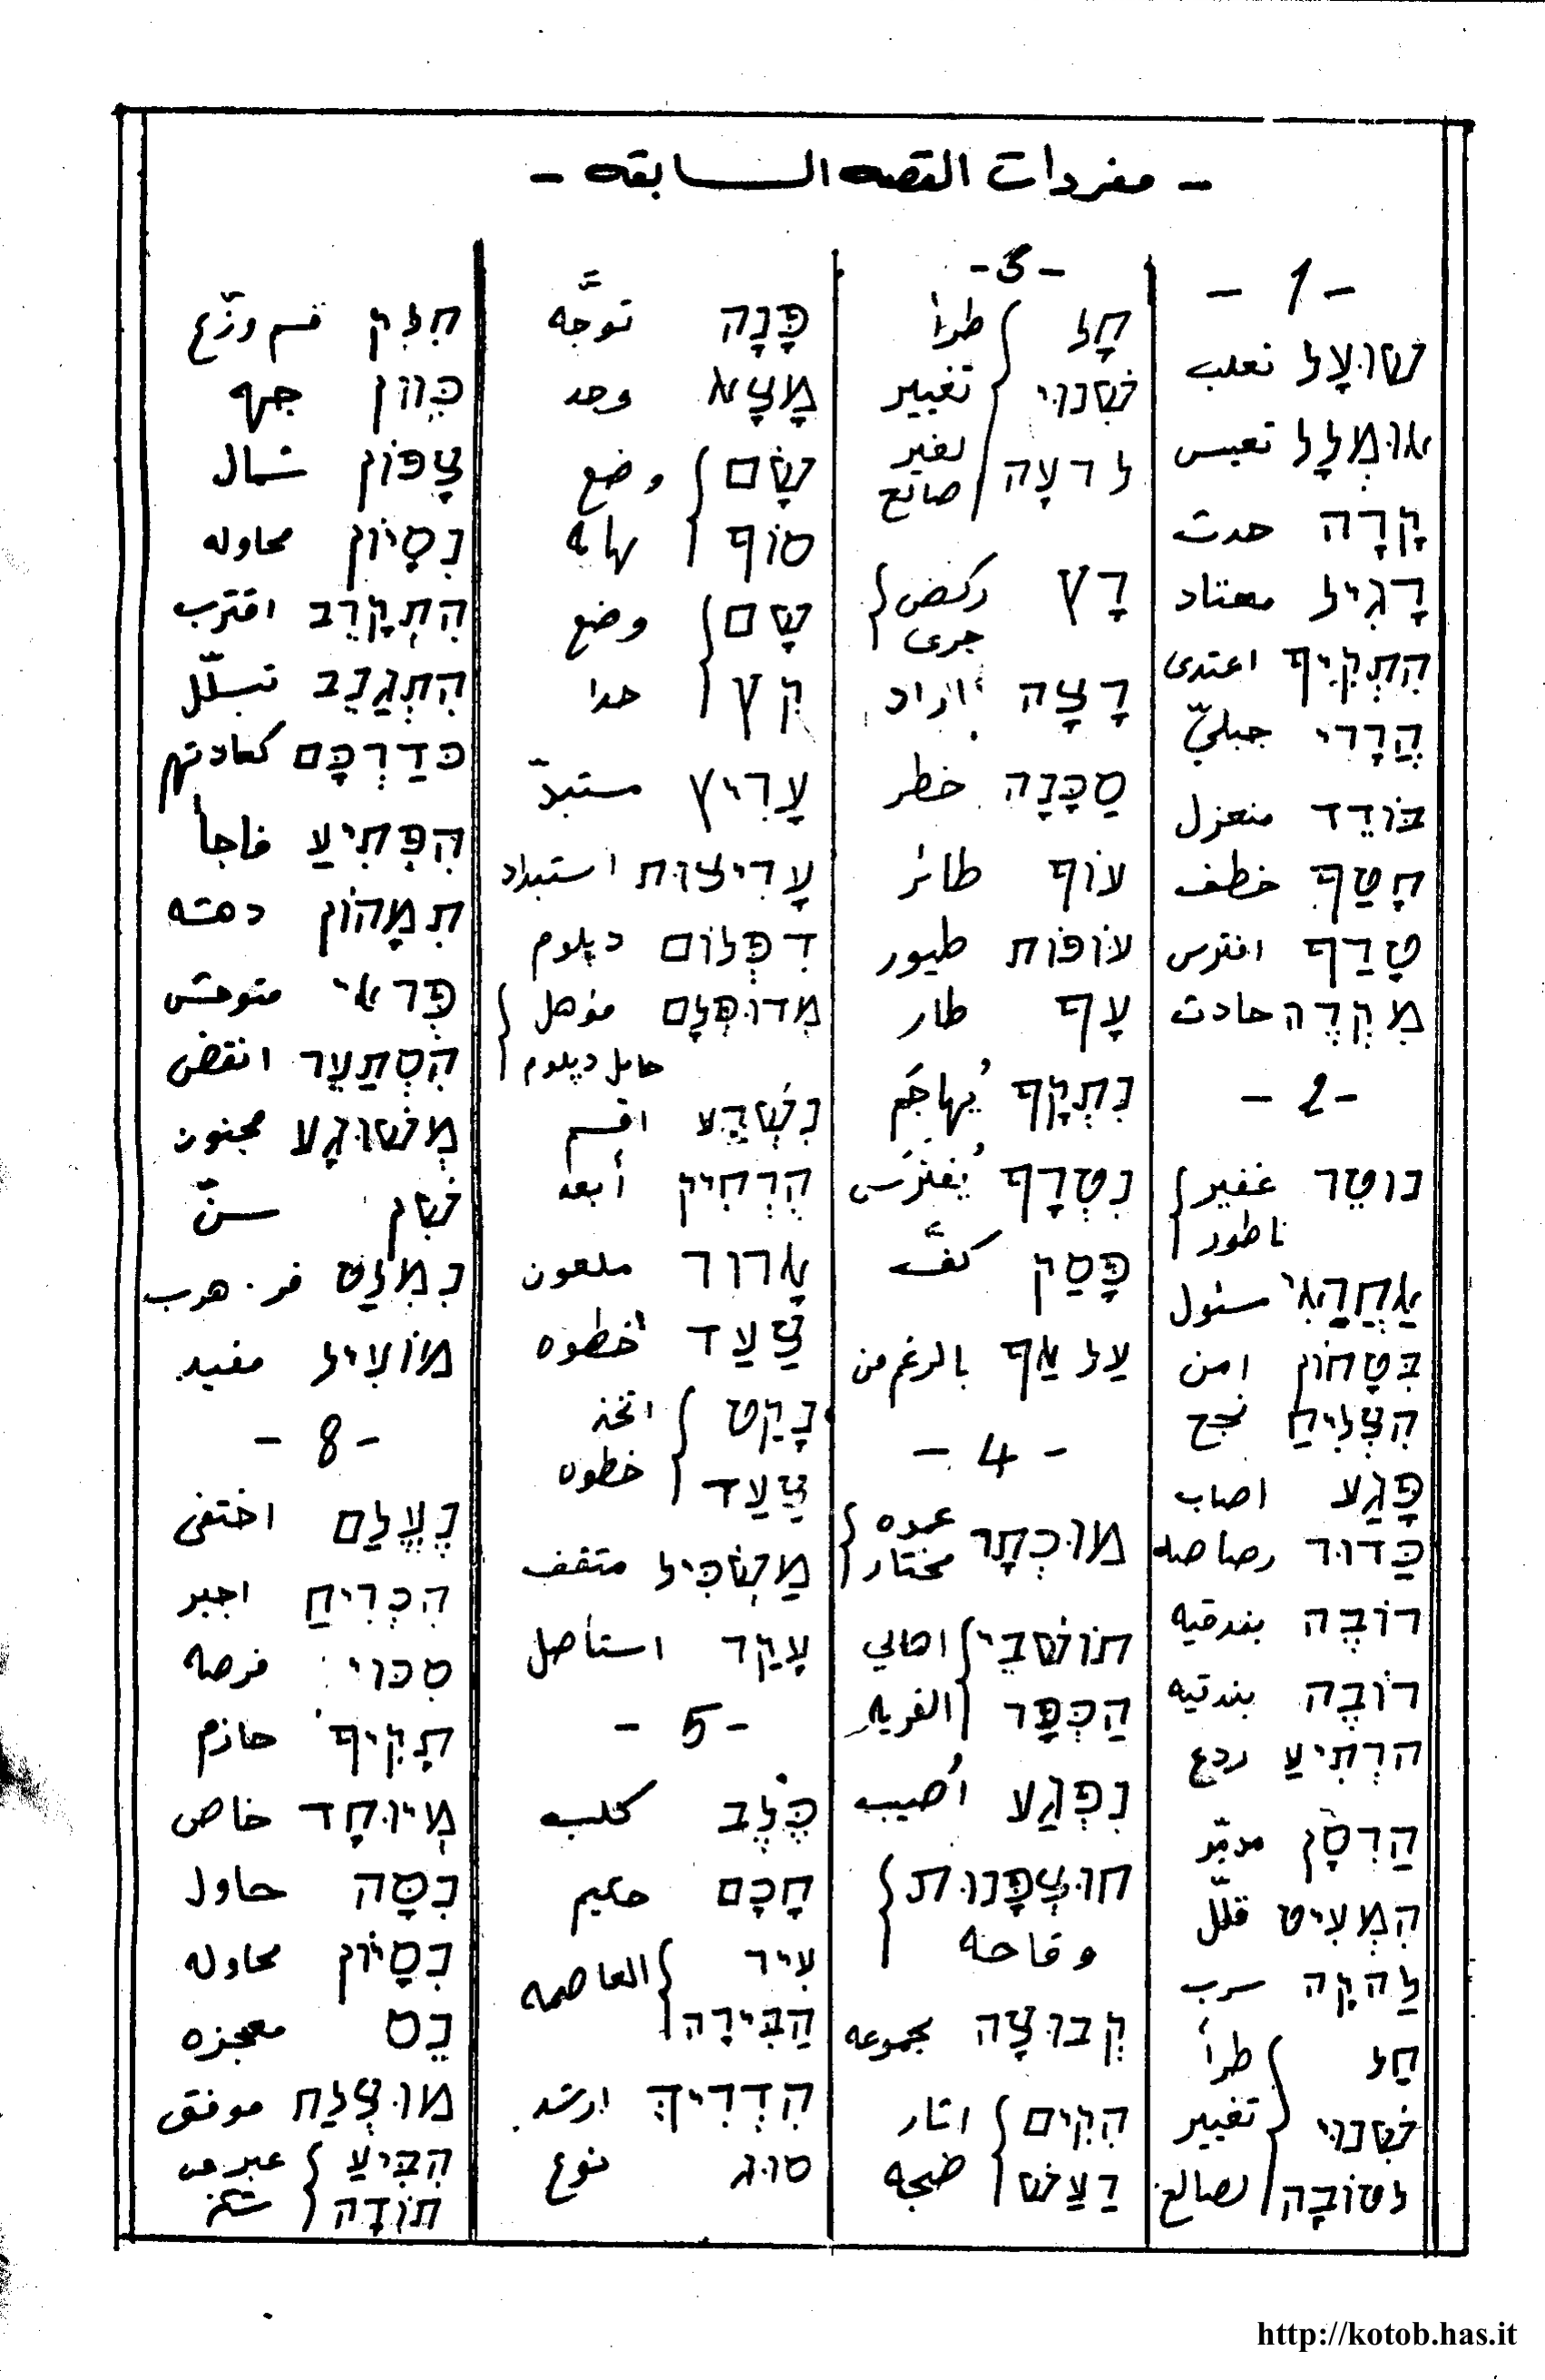 - مفردات القصه السابقه -
- 1 -
שׁוּעָל ثعلب
אוּמְלָל تعيس
קָרָה حدث
רָגִיל معتاد
הִתְקִיף اعتدى
הֲרָרִי جبليّ
בּוֹדֵד منعزل
חָטַף خطف
טָרַף افترس
מִקְרֶה حادث
- 2 -
נוֹטֵר غفير
ناطور
אַחֲרָאִי مسئول
בִּטָחוֹן امن
הִצְלִיחַ نجح
פָּגַע اصاب
כַּדוּר رصاصه
רוֹבֶה بندقيه
רוֹבֶה بندقيه
הרְתִיעַ ردع
הַרִסָן مدمّر
הִמְעִיט قلّل
לַהקָה سرب
חַל طرأ
שִׁנוּי تغيير
לטוֹבָה لصالح
- 3 -
חָל طرأ
שִׁנוּי تغيير
לרעָה لغير
صالح
רָץ ركض
جرى
רָצָה اراد
סַכָּנָה خطر
עוֹף طائر
עוֹפוֹת طيور
עָף طار
נִתְקָף يُهاجَم
נִטְרָף يُفترَس
פָּסַק كفّ
עַל אַף بالرغم من
- 4 -
מוּכְתָר عمده
مختار
תוֹשׁבֵי اهالي
הַכְּפָר القريه
נִפְגַע أُصيب
חוּצְפָּנוּת
وقاحه
קְבוּצָה مجموعه
הִקִים اثار
רַעַשׁ ضجه
פָּנָה توجَّه
מָצָא وجد
שָׂם وضع
סוֹף نهايه
שָׂם وضع
קֵץ حدا
עָרִיץ مستبدّ
עָרִיצוּת استبداد
דִפְּלוֹם دپلوم
מְדוּפְּלָם مؤهل
حامل دپلوم
נִשְׁבַּע اقسم
הִרְחִיק أبعد
אָרוּר ملعون
צַעַד خطوه
נָקַט اتخذ
צַעַד خطوه
מַשְׂכִּיל مثقف
עָקַר استأصل
- 5 -
כֶּלֶב كلب
חָכָם حكيم
עִיר العاصمه
הַבִּירָה
הִדְרִיךְ ارشد
סוּג نوع
חִלֵק قسم وزّع
כִּווּן جهه
צָפוֹן شمال
נִסָיוֹן محاوله
הִתְקָרֵב اقترب
הִתְגַנֵב تسلّل
כּדַרְכָּם كعادتهم
הִפְתִיעַ فاجأ
תִמָהוֹן دهشه
פִּרְאִי متوحش
הִסְתַעֵר انقض
מְשׁוּגָע مجنون
שֵׁן سنّ
נִמְלַט فر . هرب
מוֹעִיל مفيد
- 8 -
נֶעֱלַם اختفى
הִכְרִיחַ اجبر
סִכּוּי فرصه
תָקִיף حازم
מְיוּחָד خاص
נִסָּה حاول
נִסָיוֹן محاوله
נֵס معجزه
מוּצְלַח موفق
הִבִּיעַ عبر عن
תוֹדָה شكر
http://kotob.has.it